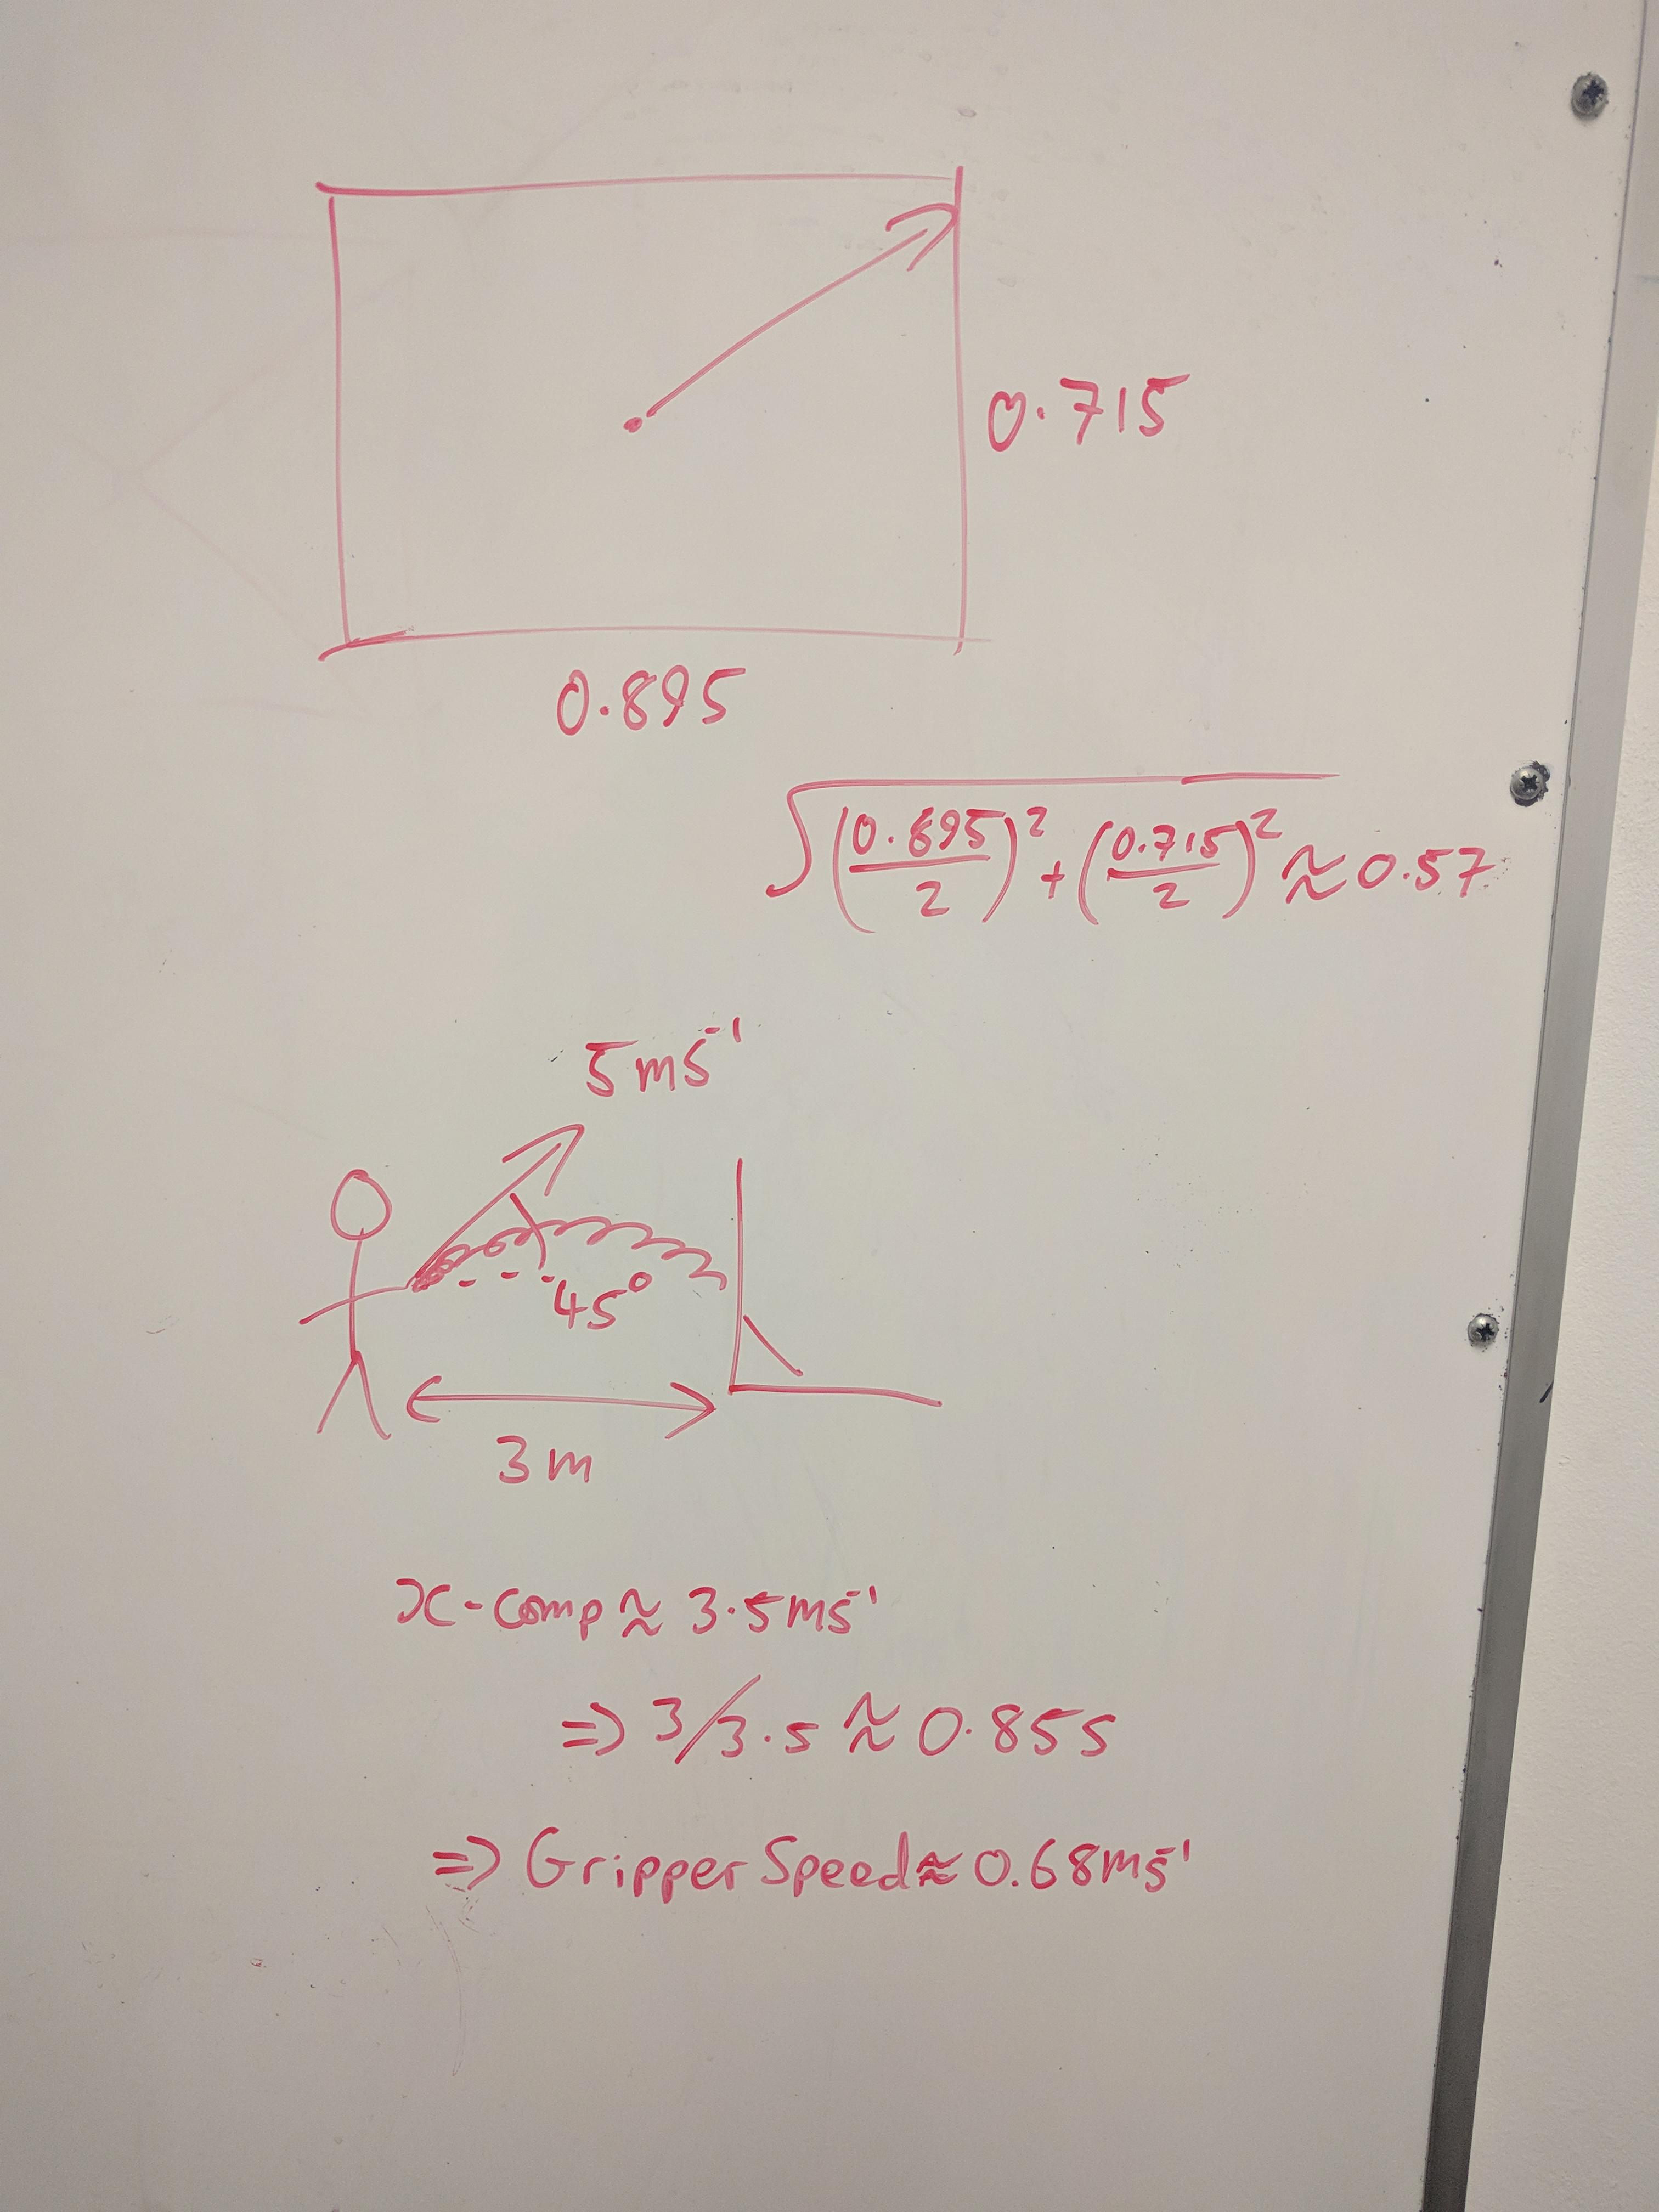 0.715
0.895
√((0.895/2)² + (0.715/2)²) ≈ 0.57
5ms⁻¹
45°
3m
x-comp ≈ 3.5ms⁻¹
⇒ 3/3.5 ≈ 0.85s
⇒ Gripper Speed ≈ 0.68ms⁻¹